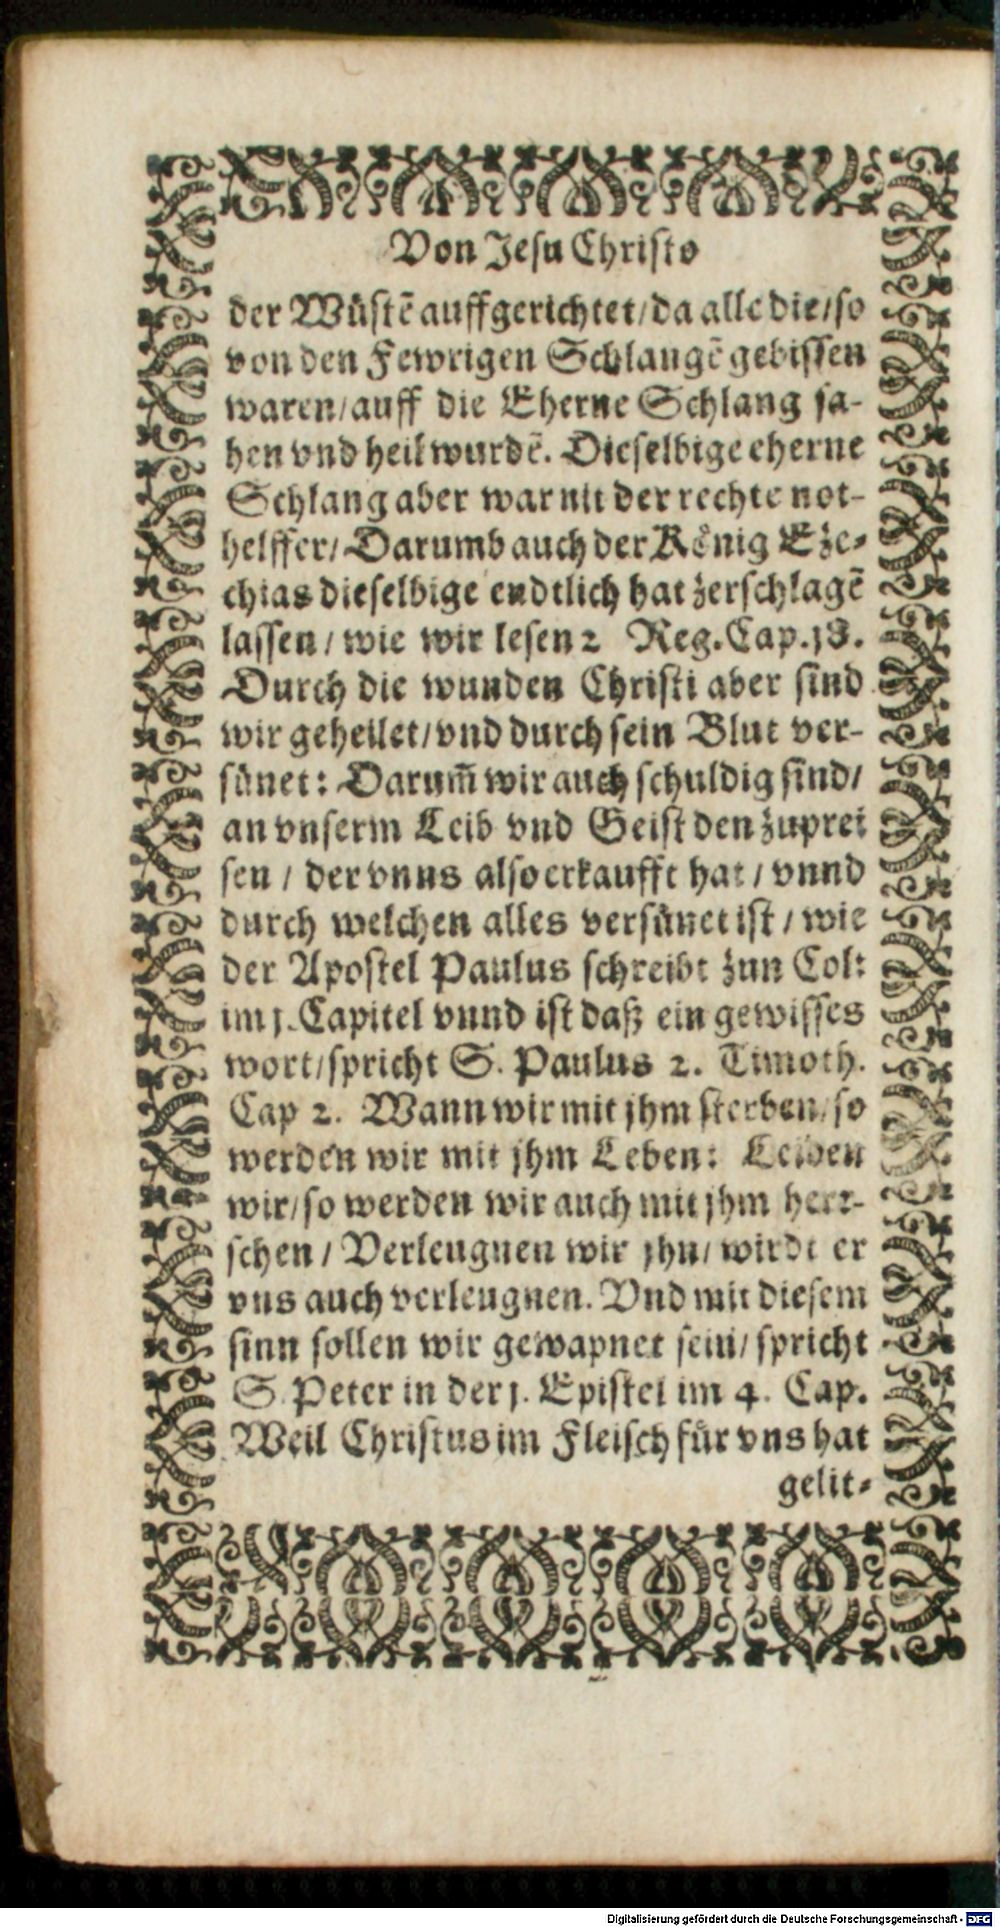 Von Jesu Christo
der Wüstē auffgerichtet/ da alle die/ so
von den Fewrigen Schlangē gebissen
waren/ auff die Eherne Schlang sa-
hen vnd heil wurdē. Dieselbige eherne
Schlang aber war nit der rechte not-
helffer/ Darumb auch der König Eze-
chias dieselbige endtlich hat zerschlagē
lassen/ wie wir lesen 2 Reg. Cap. 18.
Durch die wunden Christi aber sind
wir geheilet/ vnd durch sein Blut ver-
sünet: Darum̄ wir auch schuldig sind/
an vnserm Leib vnd Geist den zuprei
sen / der vnns also erkaufft hat / vnnd
durch welchen alles versünet ist / wie
der Apostel Paulus schreibt zun Col:
im 1. Capitel vnnd ist daß ein gewisses
wort/ spricht S. Paulus 2. Timoth.
Cap 2. Wann wir mit jhm sterben/ so
werden wir mit jhm Leben: Leiden
wir/ so werden wir auch mit jhm herr-
schen / Verleugnen wir jhn/ wirdt er
vns auch verleugnen. Vnd mit diesem
sinn sollen wir gewapnet sein/ spricht
S. Peter in der 1. Epistel im 4. Cap.
Weil Christus im Fleisch für vns hat
gelit-
Digitalisierung gefördert durch die Deutsche Forschungsgemeinschaft - DFG